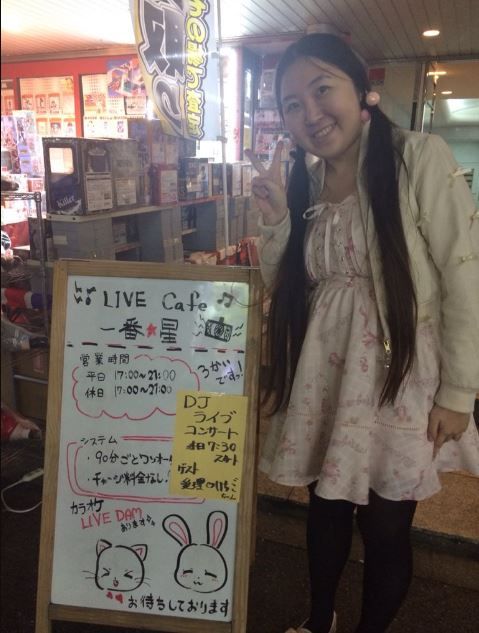 Killer
♪♪ LIVE Cafe ♪
一番★星
営業時間
平日 17:00〜21:00
休日 17:00〜21:00
3かい
ですッ!
DJ
ライブ
コンサート
7:30
スタート
ゲスト
システム
・90分ごとワンオー
・チャージ料金なし!
カラオケ
LIVE DAM
あります
お待ちしております